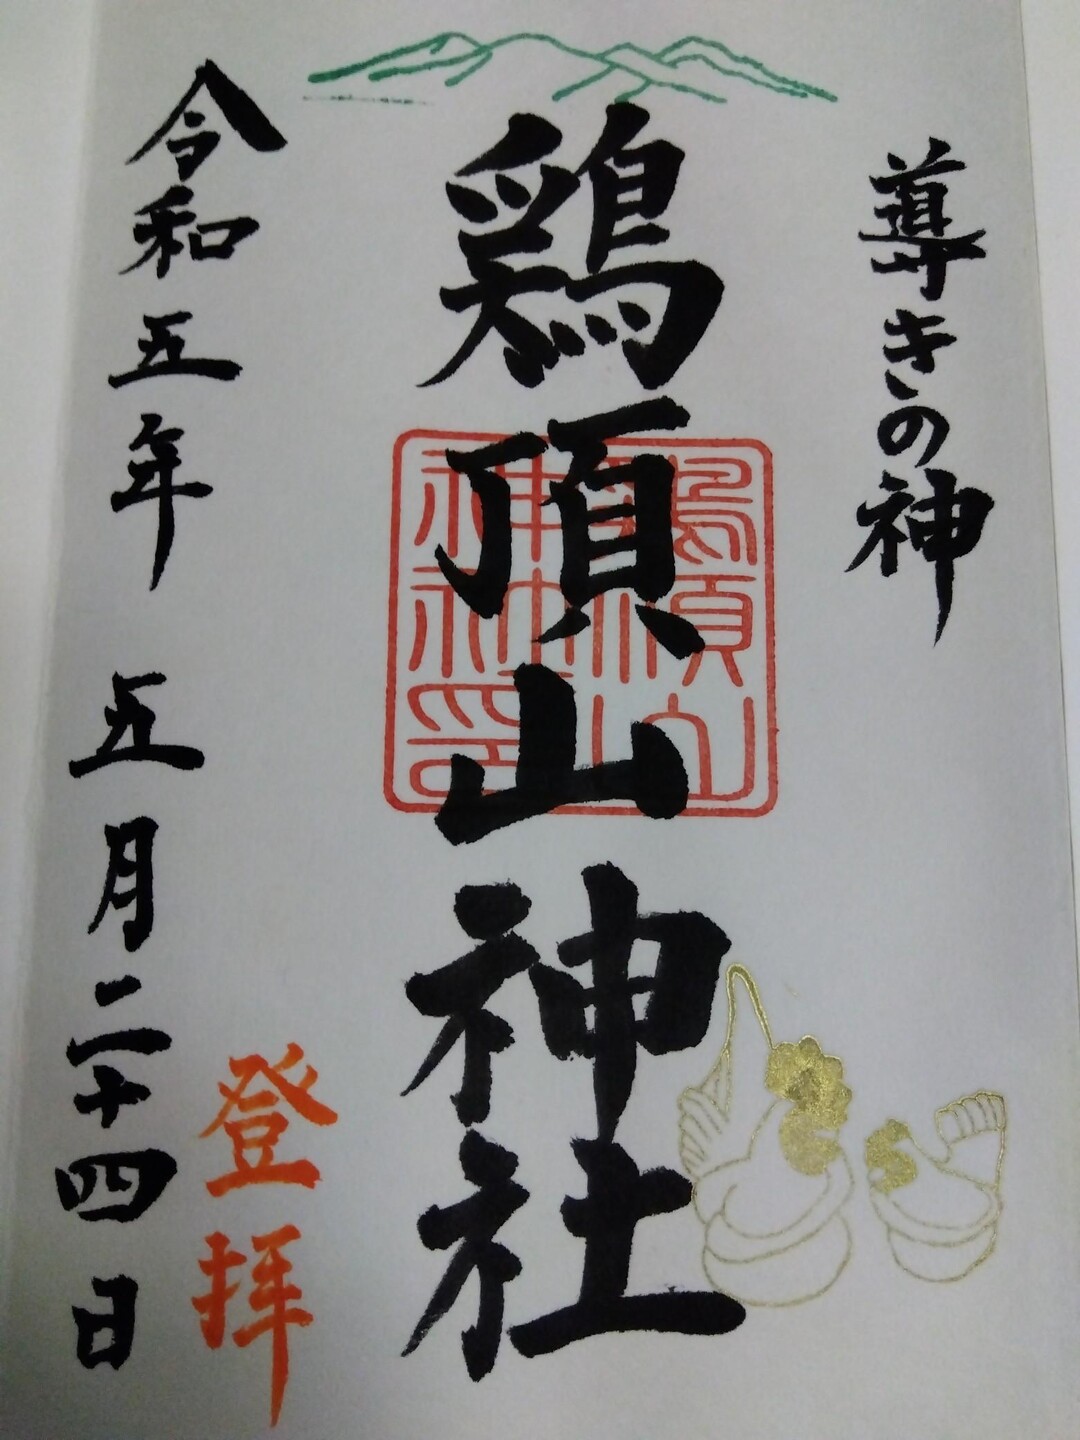 導きの神
鶏頂山神社
鶏頂山
神社神印
登拝
令和五年 五月二十四日